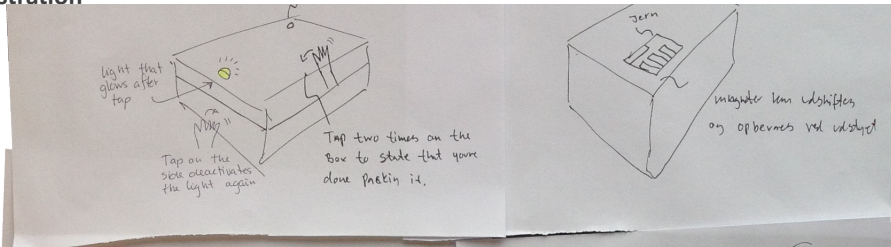 stration
light that
glows after
tap
Tap on the
side deactivates
the light again
Tap two times on the
Box to state that youre
done packin it.
Jern
magneter kan udskiftes
og opbevares ved udstyret